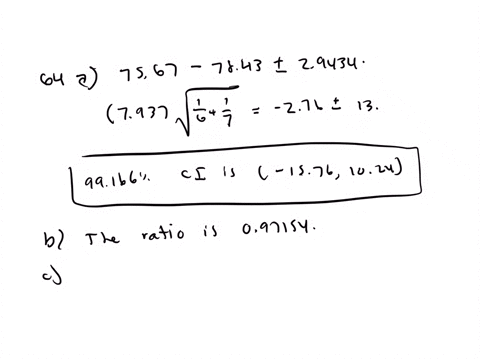 64 a) 75.67 - 78.43 ± 2.9434.
(7.937) √(1/6 + 1/7) = -2.76 ± 13.
99.166% CI is (-15.76, 10.24)
b) The ratio is 0.97154.
c)